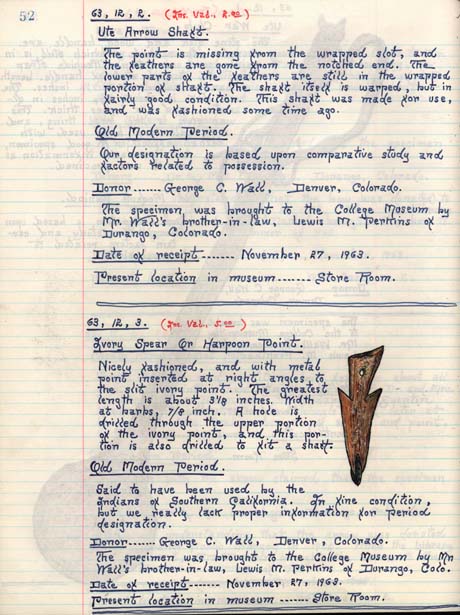 52
63, 12, 2. (Ins. Val., 2.00)
Ute Arrow Shaft.
The point is missing from the wrapped slot, and
the feathers are gone from the notched end. The
lower parts of the feathers are still in the wrapped
portion of shaft. The shaft itself is warped, but in
fairly good condition. This shaft was made for use,
and was fashioned some time ago.
Old Modern Period.
Our designation is based upon comparative study and
factors related to possession.
Donor....... George C. Wall, Denver, Colorado.
The specimen was brought to the College Museum by
Mr. Wall's brother-in-law, Lewis M. Perkins of
Durango, Colorado.
Date of receipt ....... November 27, 1963.
Present location in museum....... Store Room.
63, 12, 3. (Ins. Val., 5.00)
Ivory Spear Or Harpoon Point.
Nicely fashioned, and with metal
point inserted at right angles to
the slit ivory point. The greatest
length is about 3 1/8 inches. Width
at barbs, 7/8 inch. A hole is
drilled through the upper portion
of the ivory point, and this por-
tion is also drilled to fit a shaft.
Old Modern Period.
Said to have been used by the
Indians of Southern California. In fine condition,
but we really lack proper information for period
designation.
Donor....... George C. Wall, Denver, Colorado.
The specimen was brought to the College Museum by Mr.
Wall's brother-in-law, Lewis M. Perkins of Durango, Colo.
Date of receipt ....... November 27, 1963.
Present location in museum ....... Store Room.